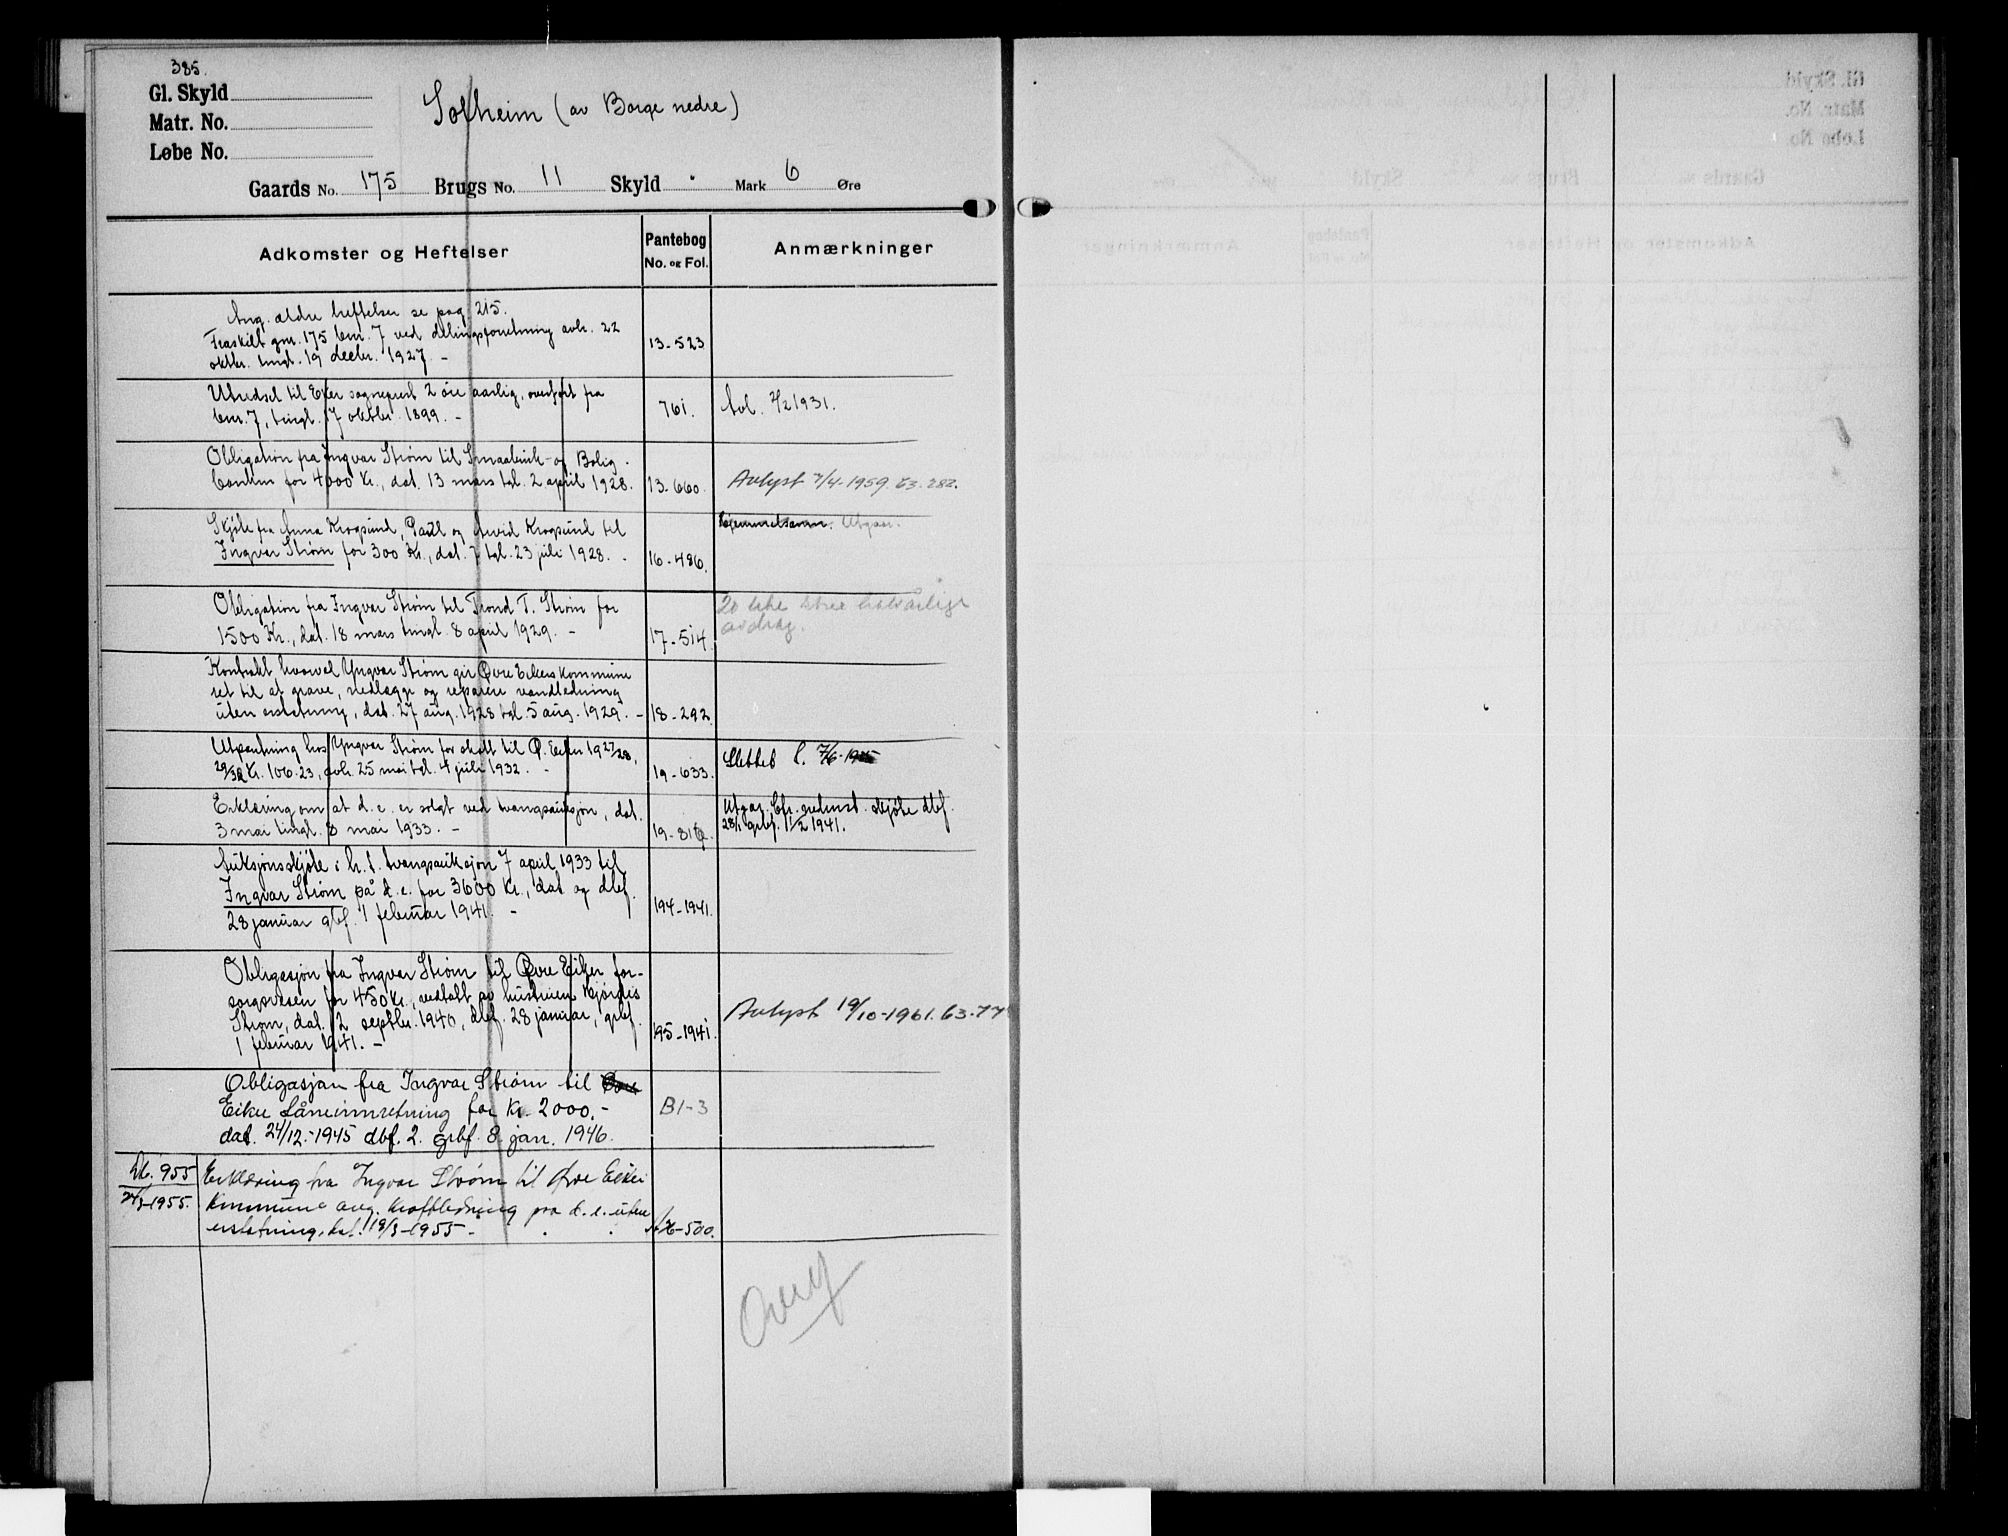 385.
Gl. Skyld
Matr. No.
Løbe No.
Solheim (av Borge nedre)
Gaards No. 175 Brugs No. 11 Skyld Mark 6 Øre
Adkomster og Heftelser
Pantebog
No. og Fol.
Anmærkninger
Ang. ældre heftelser se pag. 215.
Fraskilt gnr. 175 bnr. 7 ved delingsforretning avh. 22
oktbr. tingl. 19 decbr. 1927. -
13-523
Utredsel til Eker sogneprest 2 øre aarlig, overført fra
bnr. 7, tingl. 17 oktbr. 1899. -
761.
Avl. 2/2 1931.
Obligation fra Ingvar Strøm til Smaabruk- og Bolig-
banken for 4000 Kr., dat. 13 mars tgl. 2 april 1928.
13-660.
Avlyst 7/4-1959. 63.282.
Skjøte fra Anna Krogsund, Paul og Arvid Krogsund til
Ingvar Strøm for 300 Kr., dat. 7 tgl. 23 juli 1928. -
16-486.
Hjemmelsanm. Utgaar.
Obligation fra Ingvar Strøm til Trond T. Strøm for
1500 Kr., dat. 18 mars tingl. 8 april 1929. -
17-514.
20 halvårlige
avdrag.
Kontrakt hvorved Yngvar Strøm gir Øvre Eikers kommune
ret til at grave, nedlægge og reparere vandledning
uten erstatning, dat. 27 aug. 1928 tgl. 5 aug. 1929. -
18-292.
Utpantning hos Yngvar Strøm for skatt til Ø. Eiker 1927/28,
29/32 Kr. 106.23, avh. 25 mai tgl. 4 juli 1932. -
19-633.
Slettet 7/6-19
Erklæring om at d. e. er solgt ved tvangsauksjon, dat.
3 mai tingl. 8 mai 1933. -
19-816.
Utgår. skjøte dbf.
28/1 grbf. 1/2 1941.
Auksjonsskjøte i h. t. tvangsauksjon 7 april 1933 til
Ingvar Strøm på d. e. for 3600 Kr., dat. og dbf.
28 januar gbf. 1 februar 1941. -
194-1941.
Obligasjon fra Ingvar Strøm til Øvre Eiker for-
sorgsvesen for 450 Kr., vedtatt av hustruen Hjørdis
Strøm, dat. 12 septbr. 1940, dbf. 28 januar, grbf.
1 februar 1941. -
195-1941.
Avlyst 19/10-1961. 63-77
Obligasjon fra Ingvar Strøm til Øvre
Eiker Låneinnretning for Kr. 2000.-
dat. 24/12.-1945 dbf. 2. grbf. 8. jan. 1946.
B1-3
Db. 955
24/3-1955.
Erklæring fra Ingvar Strøm til Øvre Eiker
kommune ang. kraftledning på d. e. uten
erstatning, dat. 19/3-1955 -
-500.
Overf